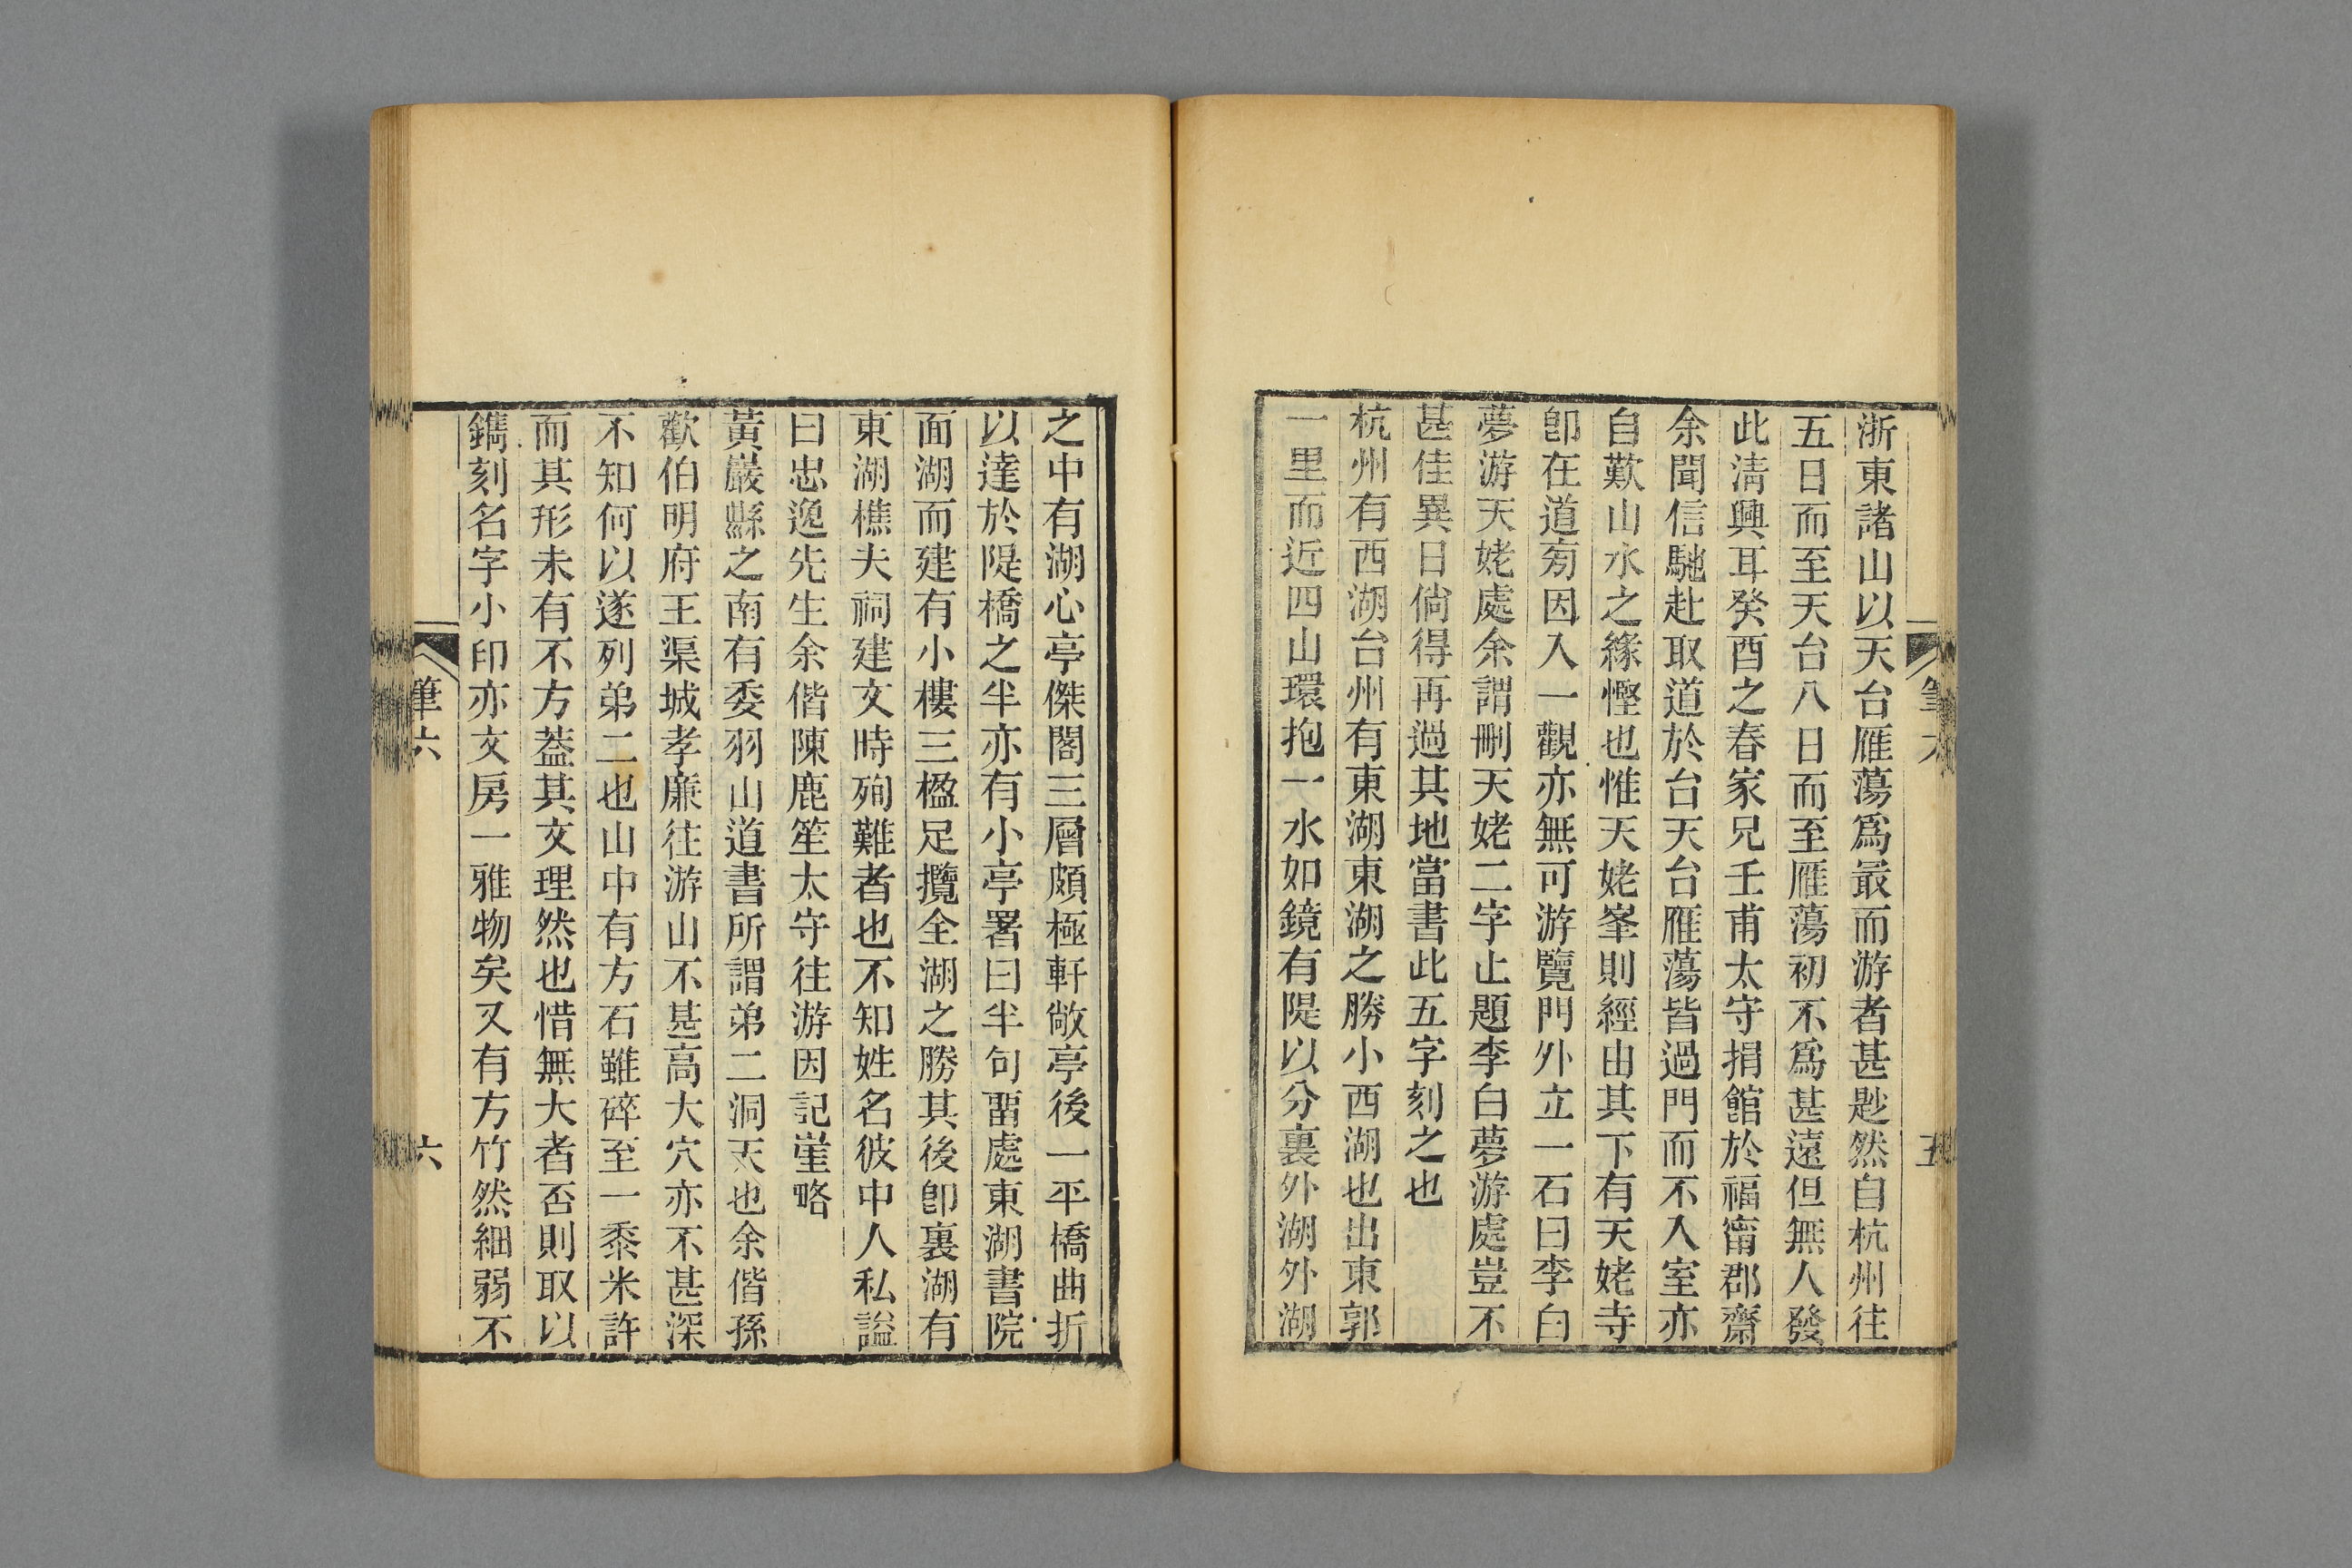 浙東諸山以天台雁蕩爲最而游者甚尟然自杭州往
五日而至天台八日而至雁蕩初不爲甚遠但無人發
此淸興耳癸酉之春家兄壬甫太守捐館於福甯郡齋
余聞信馳赴取道於台天台雁蕩皆過門而不入室亦
自歎山水之緣慳也惟天姥峯則經由其下有天姥寺
卽在道旁因入一觀亦無可游覽門外立一石曰李白
夢游天姥處余謂刪天姥二字止題李白夢游處豈不
甚佳異日倘得再過其地當書此五字刻之也
杭州有西湖台州有東湖東湖之勝小西湖也出東郭
一里而近四山環抱一水如鏡有隄以分裏外湖外湖
筆六
五
之中有湖心亭傑閣三層頗極軒敞亭後一平橋曲折
以達於隄橋之半亦有小亭署曰半句畱處東湖書院
面湖而建有小樓三楹足攬全湖之勝其後卽裏湖有
東湖樵夫祠建文時殉難者也不知姓名彼中人私謚
曰忠逸先生余偕陳鹿笙太守往游因記崖略
黃巖縣之南有委羽山道書所謂弟二洞天也余偕孫
歡伯明府王渠城孝廉往游山不甚高大穴亦不甚深
不知何以遂列弟二也山中有方石雖碎至一黍米許
而其形未有不方葢其文理然也惜無大者否則取以
鐫刻名字小印亦文房一雅物矣又有方竹然細弱不
筆六
六